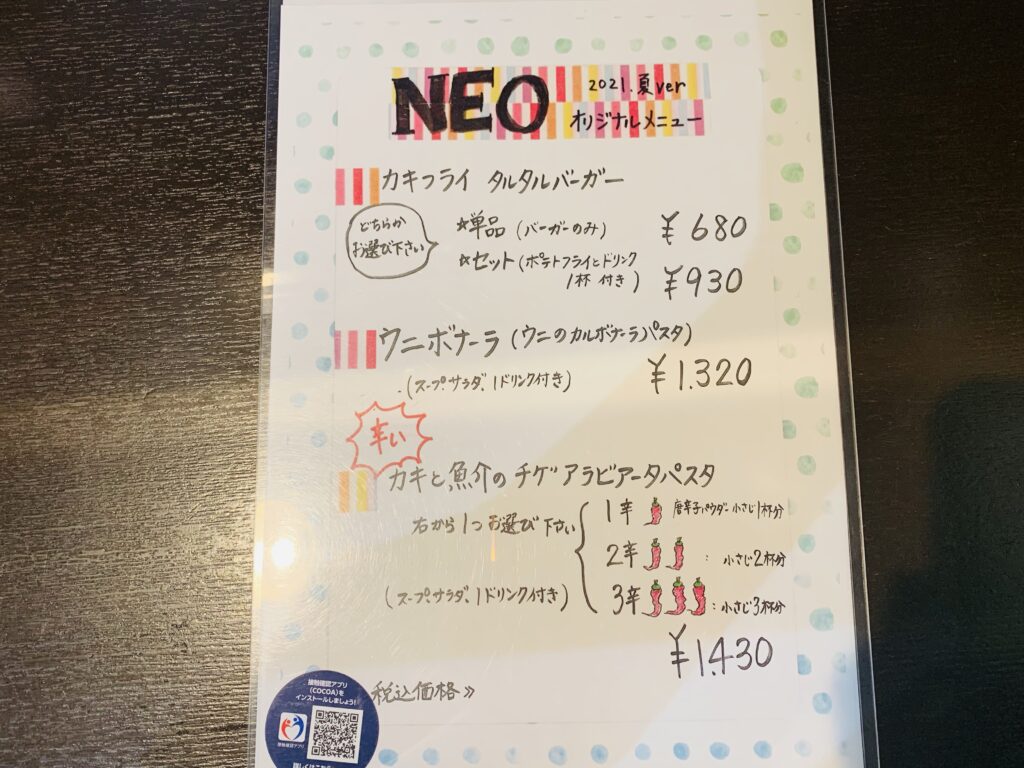 NEO
2021.夏ver
オリジナルメニュー
カキフライ タルタルバーガー
どちらか
お選び下さい
☆単品(バーガーのみ) ¥680
☆セット(ポテトフライとドリンク
1杯 付き) ¥930
ウニボナーラ(ウニのカルボナーラパスタ)
(スープ、サラダ、1ドリンク付き) ¥1.320
辛い
カキと魚介のチゲアラビアータパスタ
右から1つお選び下さい
1辛 唐辛子パウダー小さじ1杯分
2辛 : 小さじ2杯分
(スープ、サラダ、1ドリンク付き)
3辛 : 小さじ3杯分
¥1.430
税込価格》
接触確認アプリ
(COCOA)を
インストールしましょう!
接触確認アプリ
詳しくはこちら